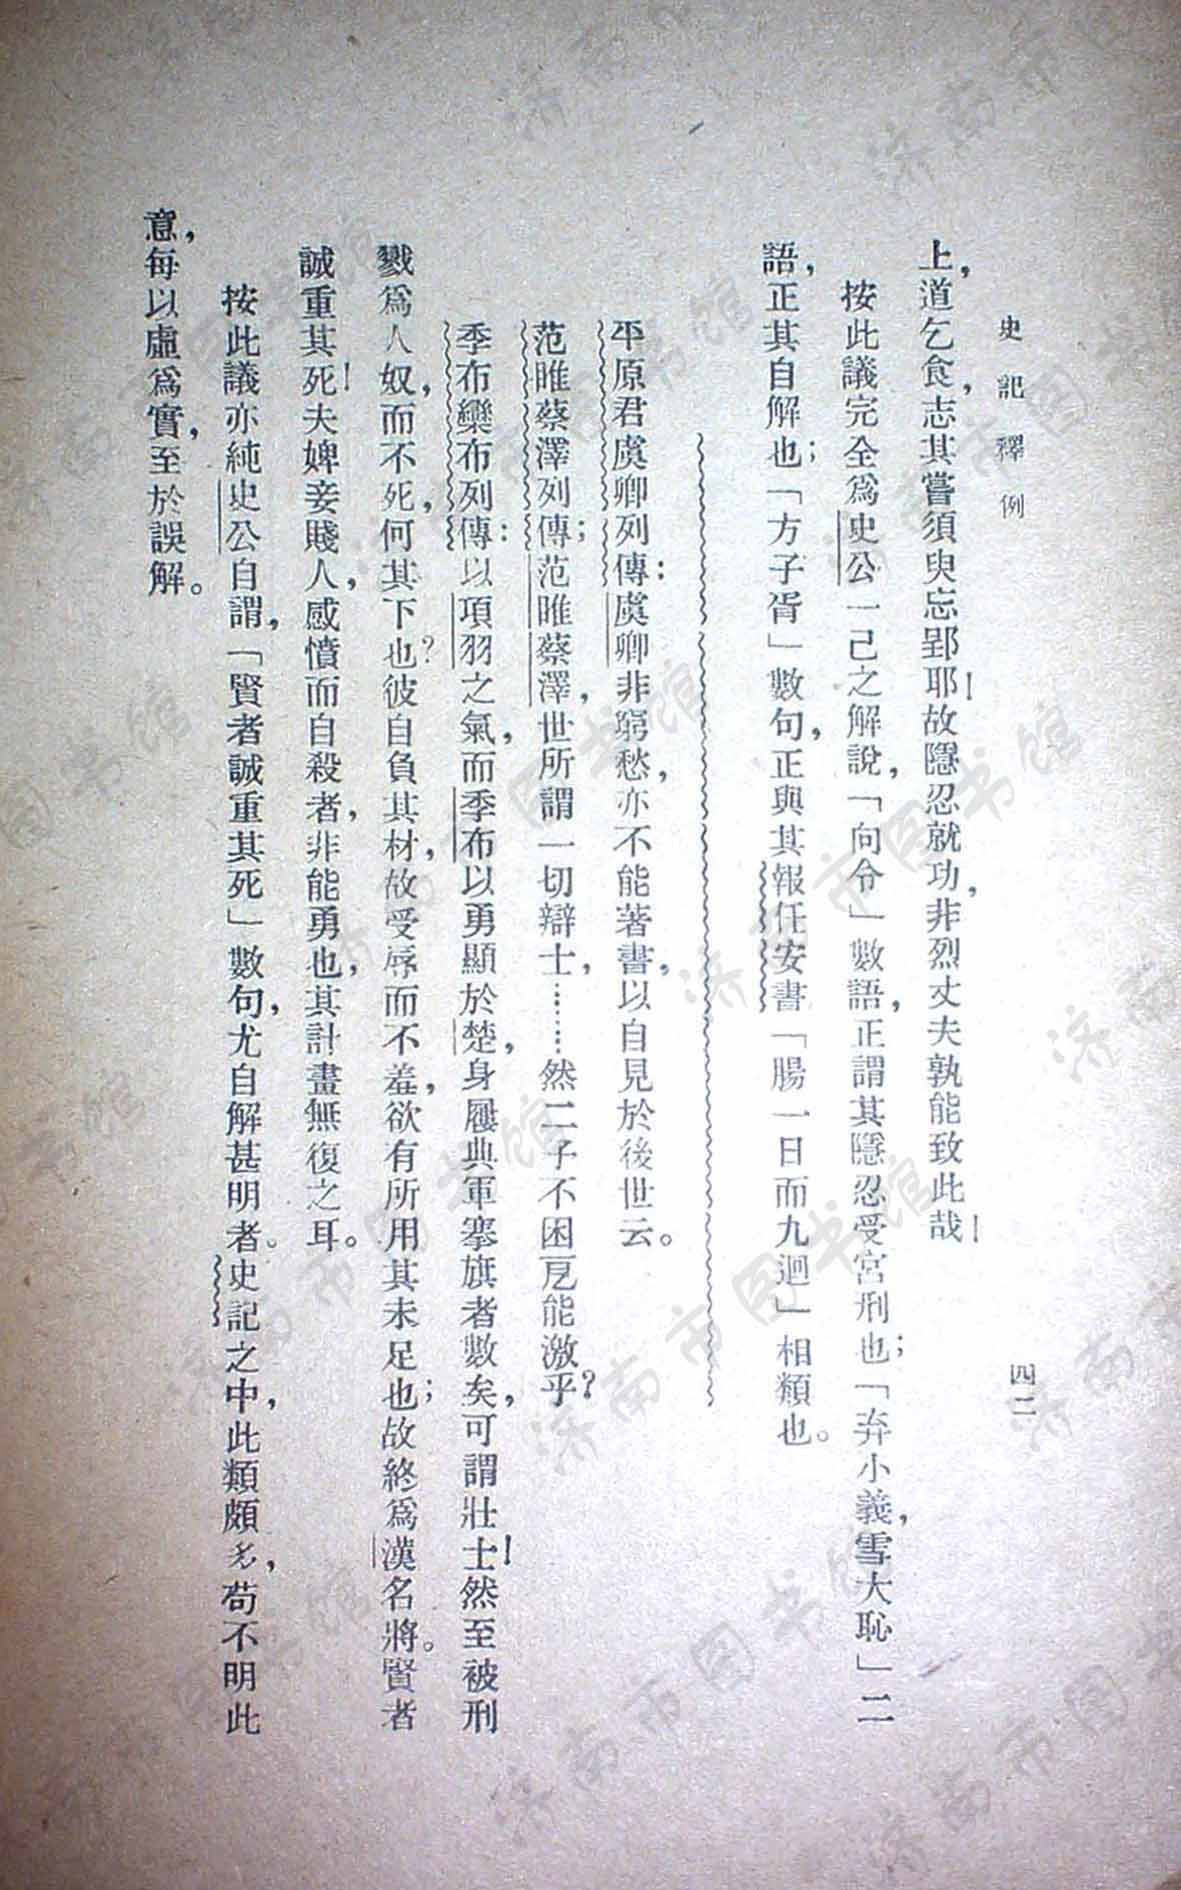 史記釋例
四二
上，道乞食，志其嘗須臾忘郢耶！故隱忍就功，非烈丈夫孰能致此哉！
按此議完全爲史公一己之解說，「向令」數語，正謂其隱忍受宮刑也；「弃小義，雪大恥」二
語，正其自解也；「方子胥」數句，正與其報任安書「腸一日而九迴」相類也。
平原君虞卿列傳：虞卿非窮愁，亦不能著書，以自見於後世云。
范睢蔡澤列傳；范睢蔡澤，世所謂一切辯士，……然二子不困戹能激乎？
季布欒布列傳：以項羽之氣，而季布以勇顯於楚，身屨典軍搴旗者數矣，可謂壯士！然至被刑
戮爲人奴，而不死，何其下也？彼自負其材，故受辱而不羞，欲有所用其未足也；故終爲漢名將。賢者
誠重其死！夫婢妾賤人，感憤而自殺者，非能勇也，其計畫無復之耳。
按此議亦純史公自謂，「賢者誠重其死」數句，尤自解甚明者。史記之中，此類頗多，苟不明此
意，每以虛爲實，至於誤解。
济南市图书馆